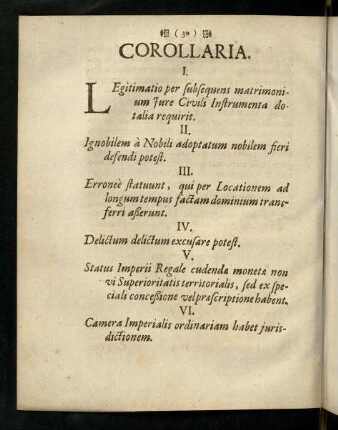 ( 30 )
COROLLARIA.
I.
LEgitimatio per subsequens matrimoni-
um Jure Civili Instrumenta do-
talia requirit.
II.
Ignobilem à Nobili adoptatum nobilem fieri
defendi potest.
III.
Erroneè statuunt, qui per Locationem ad
longum tempus factam dominium trans-
ferri asserunt.
IV.
Delictum delictum excusare potest.
V.
Status Imperii Regale cudendæ monetæ non
vi Superioritatis territorialis, sed ex spe-
ciali concessione vel præscriptione habent.
VI.
Camera Imperialis ordinariam habet juris-
dictionem.